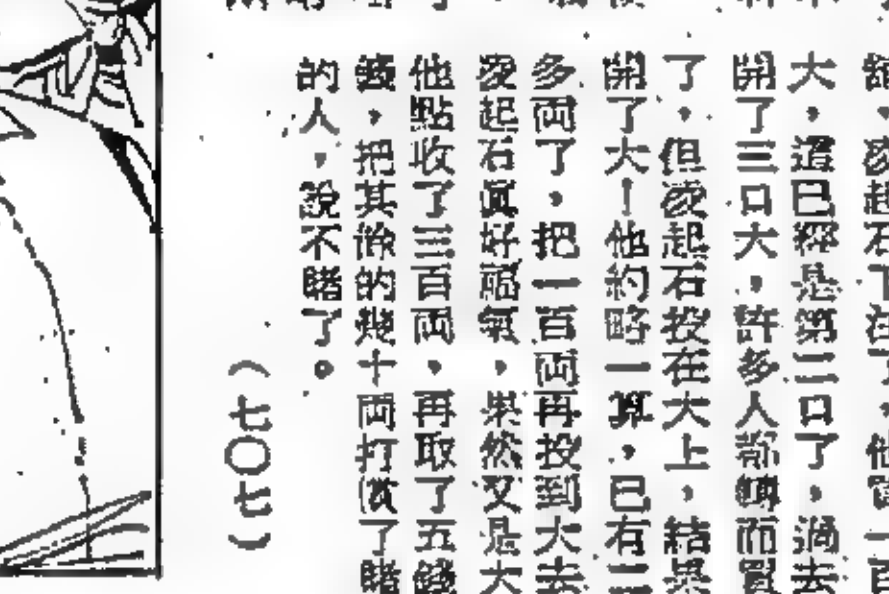 額，凌起石下注了，他買一百
大，這已經是第二口了，過去
開了三口大，許多人都轉而買
了，但凌起石投在大上，結果
開了大！他約略一算，已有二
多両了，把一百両再投到大去
凌起石眞好福氣，果然又是大
他點收了三百両，再取了五錢
，把其餘的幾十両打傲了賭
的人，說不賭了。
（七〇七）